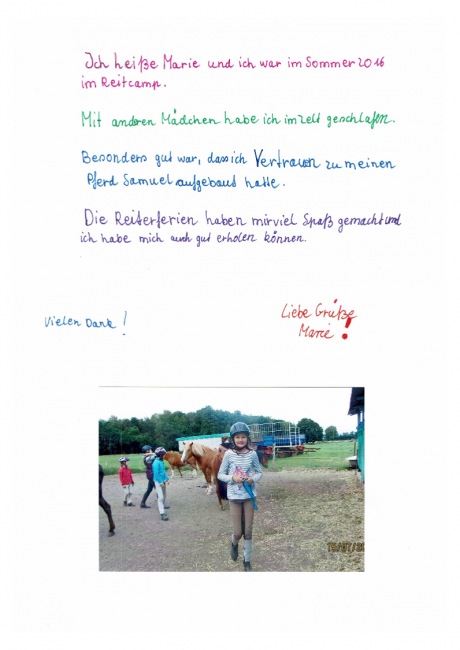 Ich heiße Marie und ich war im Sommer 2016
im Reitcamp.
Mit anderen Mädchen habe ich im Zelt geschlafen.
Besonders gut war, dass ich Vertrauen zu meinen
Pferd Samuel aufgebaut hatte.
Die Reiterferien haben mir viel Spaß gemacht und
ich habe mich auch gut erholen können.
Liebe Grüße
Vielen Dank!
Marie!